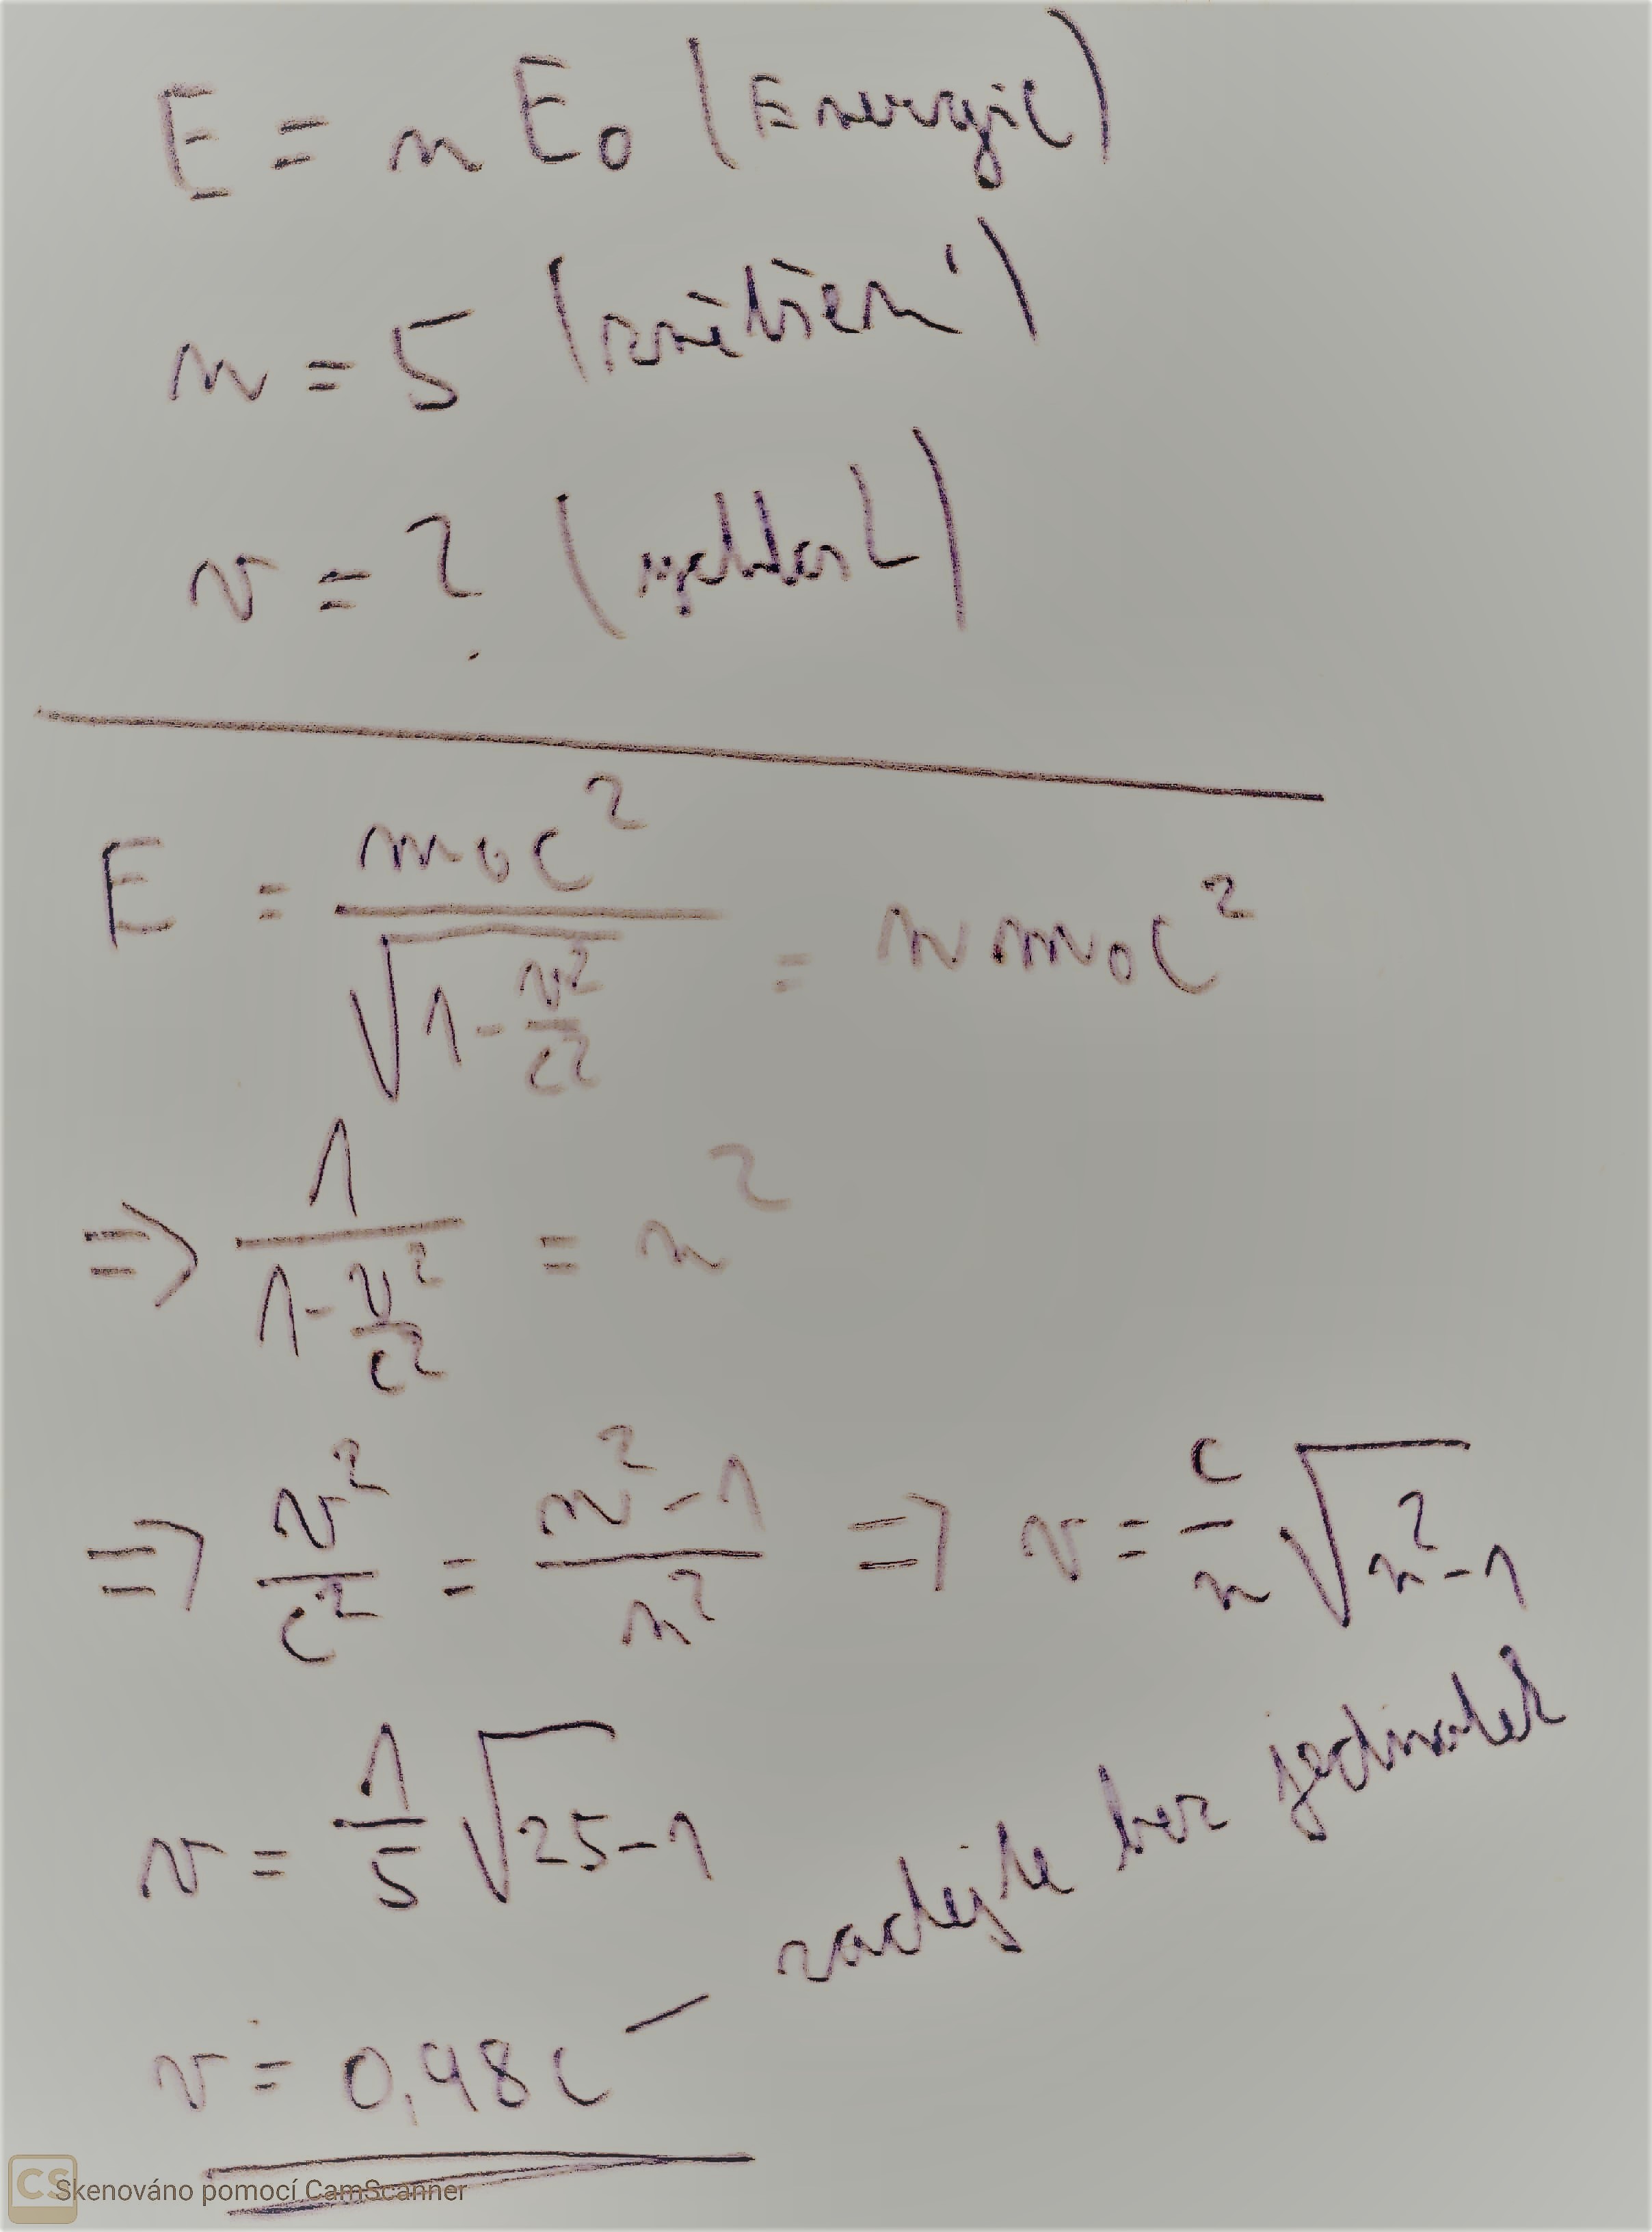 E = n E₀ (Energie)
n = 5 (zvětšení)
v = ? (rychlost)
E = m₀c² / √(1 - v²/c²) = n m₀c²
=> 1 / (1 - v²/c²) = n²
=> v²/c² = (n² - 1) / n² => v = c/n √(n² - 1)
v = 1/5 √(25 - 1)
v = 0,98c – zadejte bez jednotek
CS Skenováno pomocí CamScanner